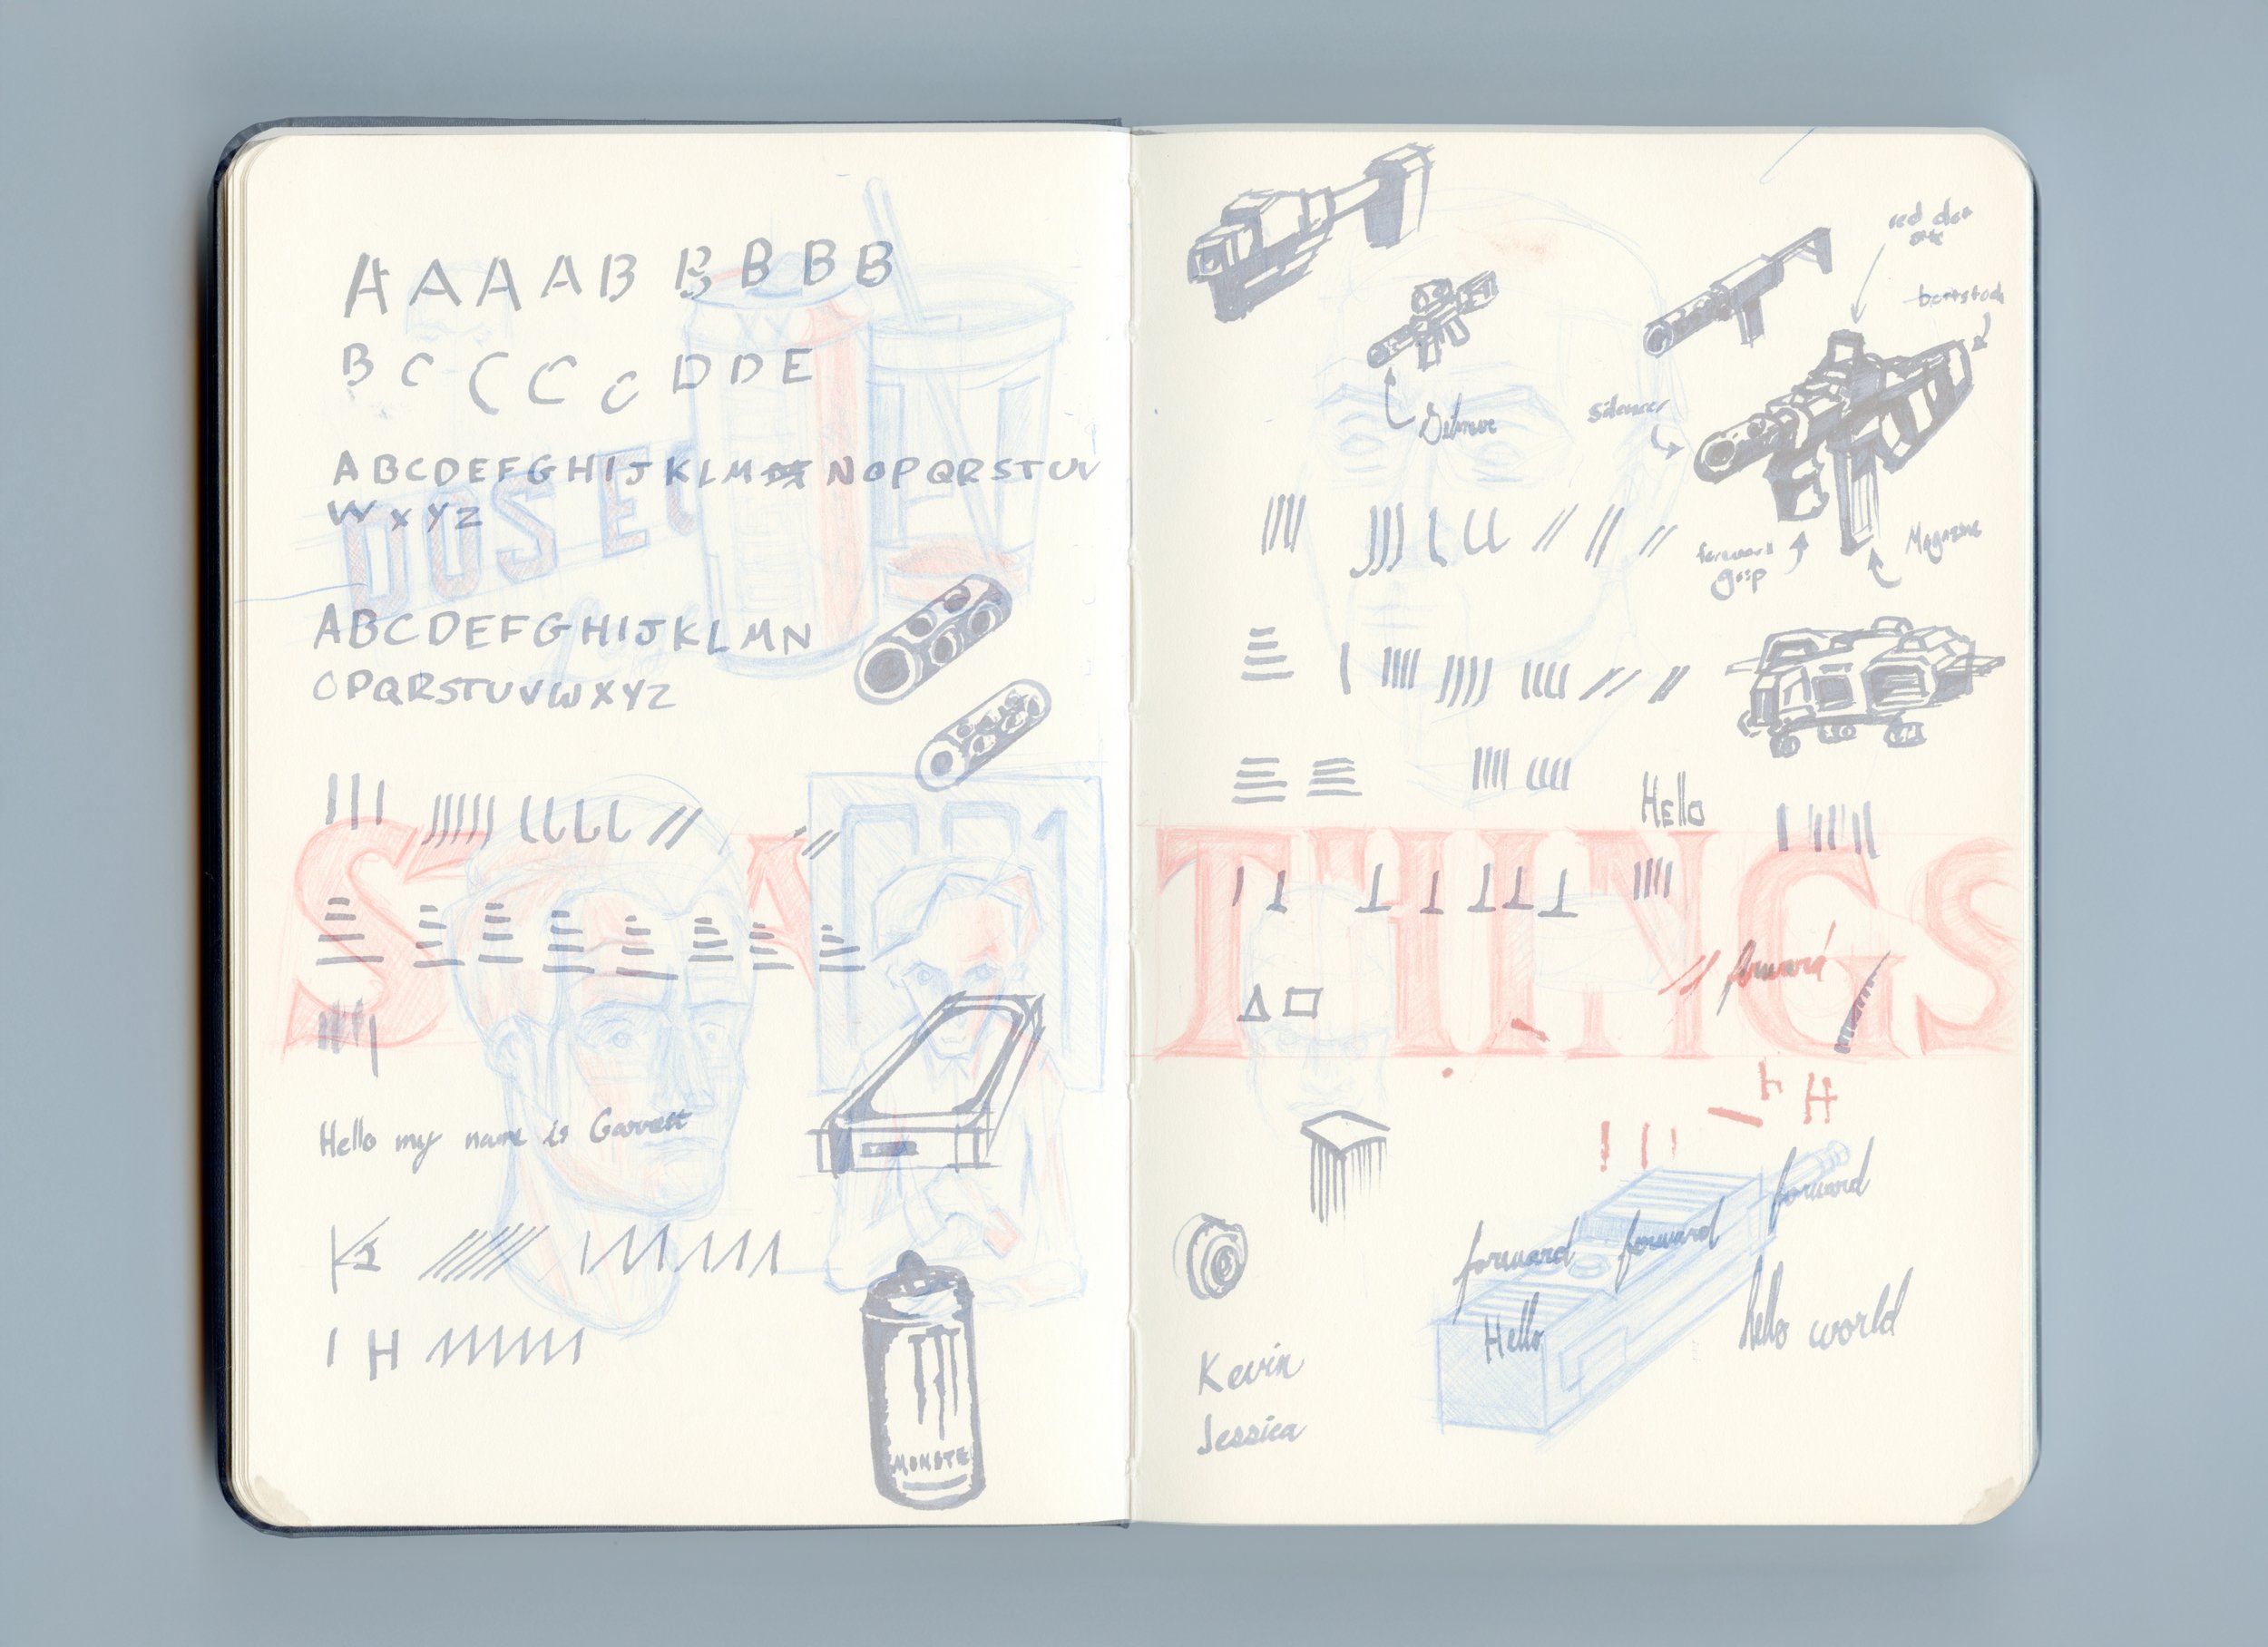 A A A A B B B B B
B C C C C D D E
A B C D E F G H I J K L M N O P Q R S T U V
W X Y Z
DOS EQ
A B C D E F G H I J K L M N
O P Q R S T U V W X Y Z
Hello my name is Garrett
I H
MONSTE
red dot
Silencer
Magazine
Hello
THINGS
forward
H
forward
forward forward
Hello
hello world
Kevin
Jessica